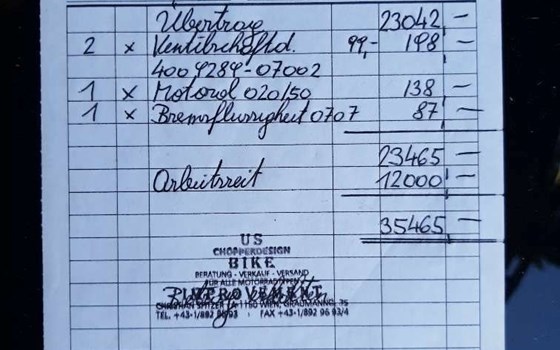 Übertrag 23042 —
2 x Ventilschaftd. 99,- 198 —
4009289-07002
1 x Motoröl 020/50 138 —
1 x Bremsflüssigkeit 0707 87 —
23465 —
Arbeitszeit 12000 —
35465 —
US
CHOPPERDESIGN
BIKE
BERATUNG - VERKAUF - VERSAND
FÜR ALLE MOTORRADTYPEN
CHRISTIAN SPITZER A-1150 WIEN, GRAUMANNG. 35
TEL. +43-1/892 96 93 FAX +43-1/892 96 93/4